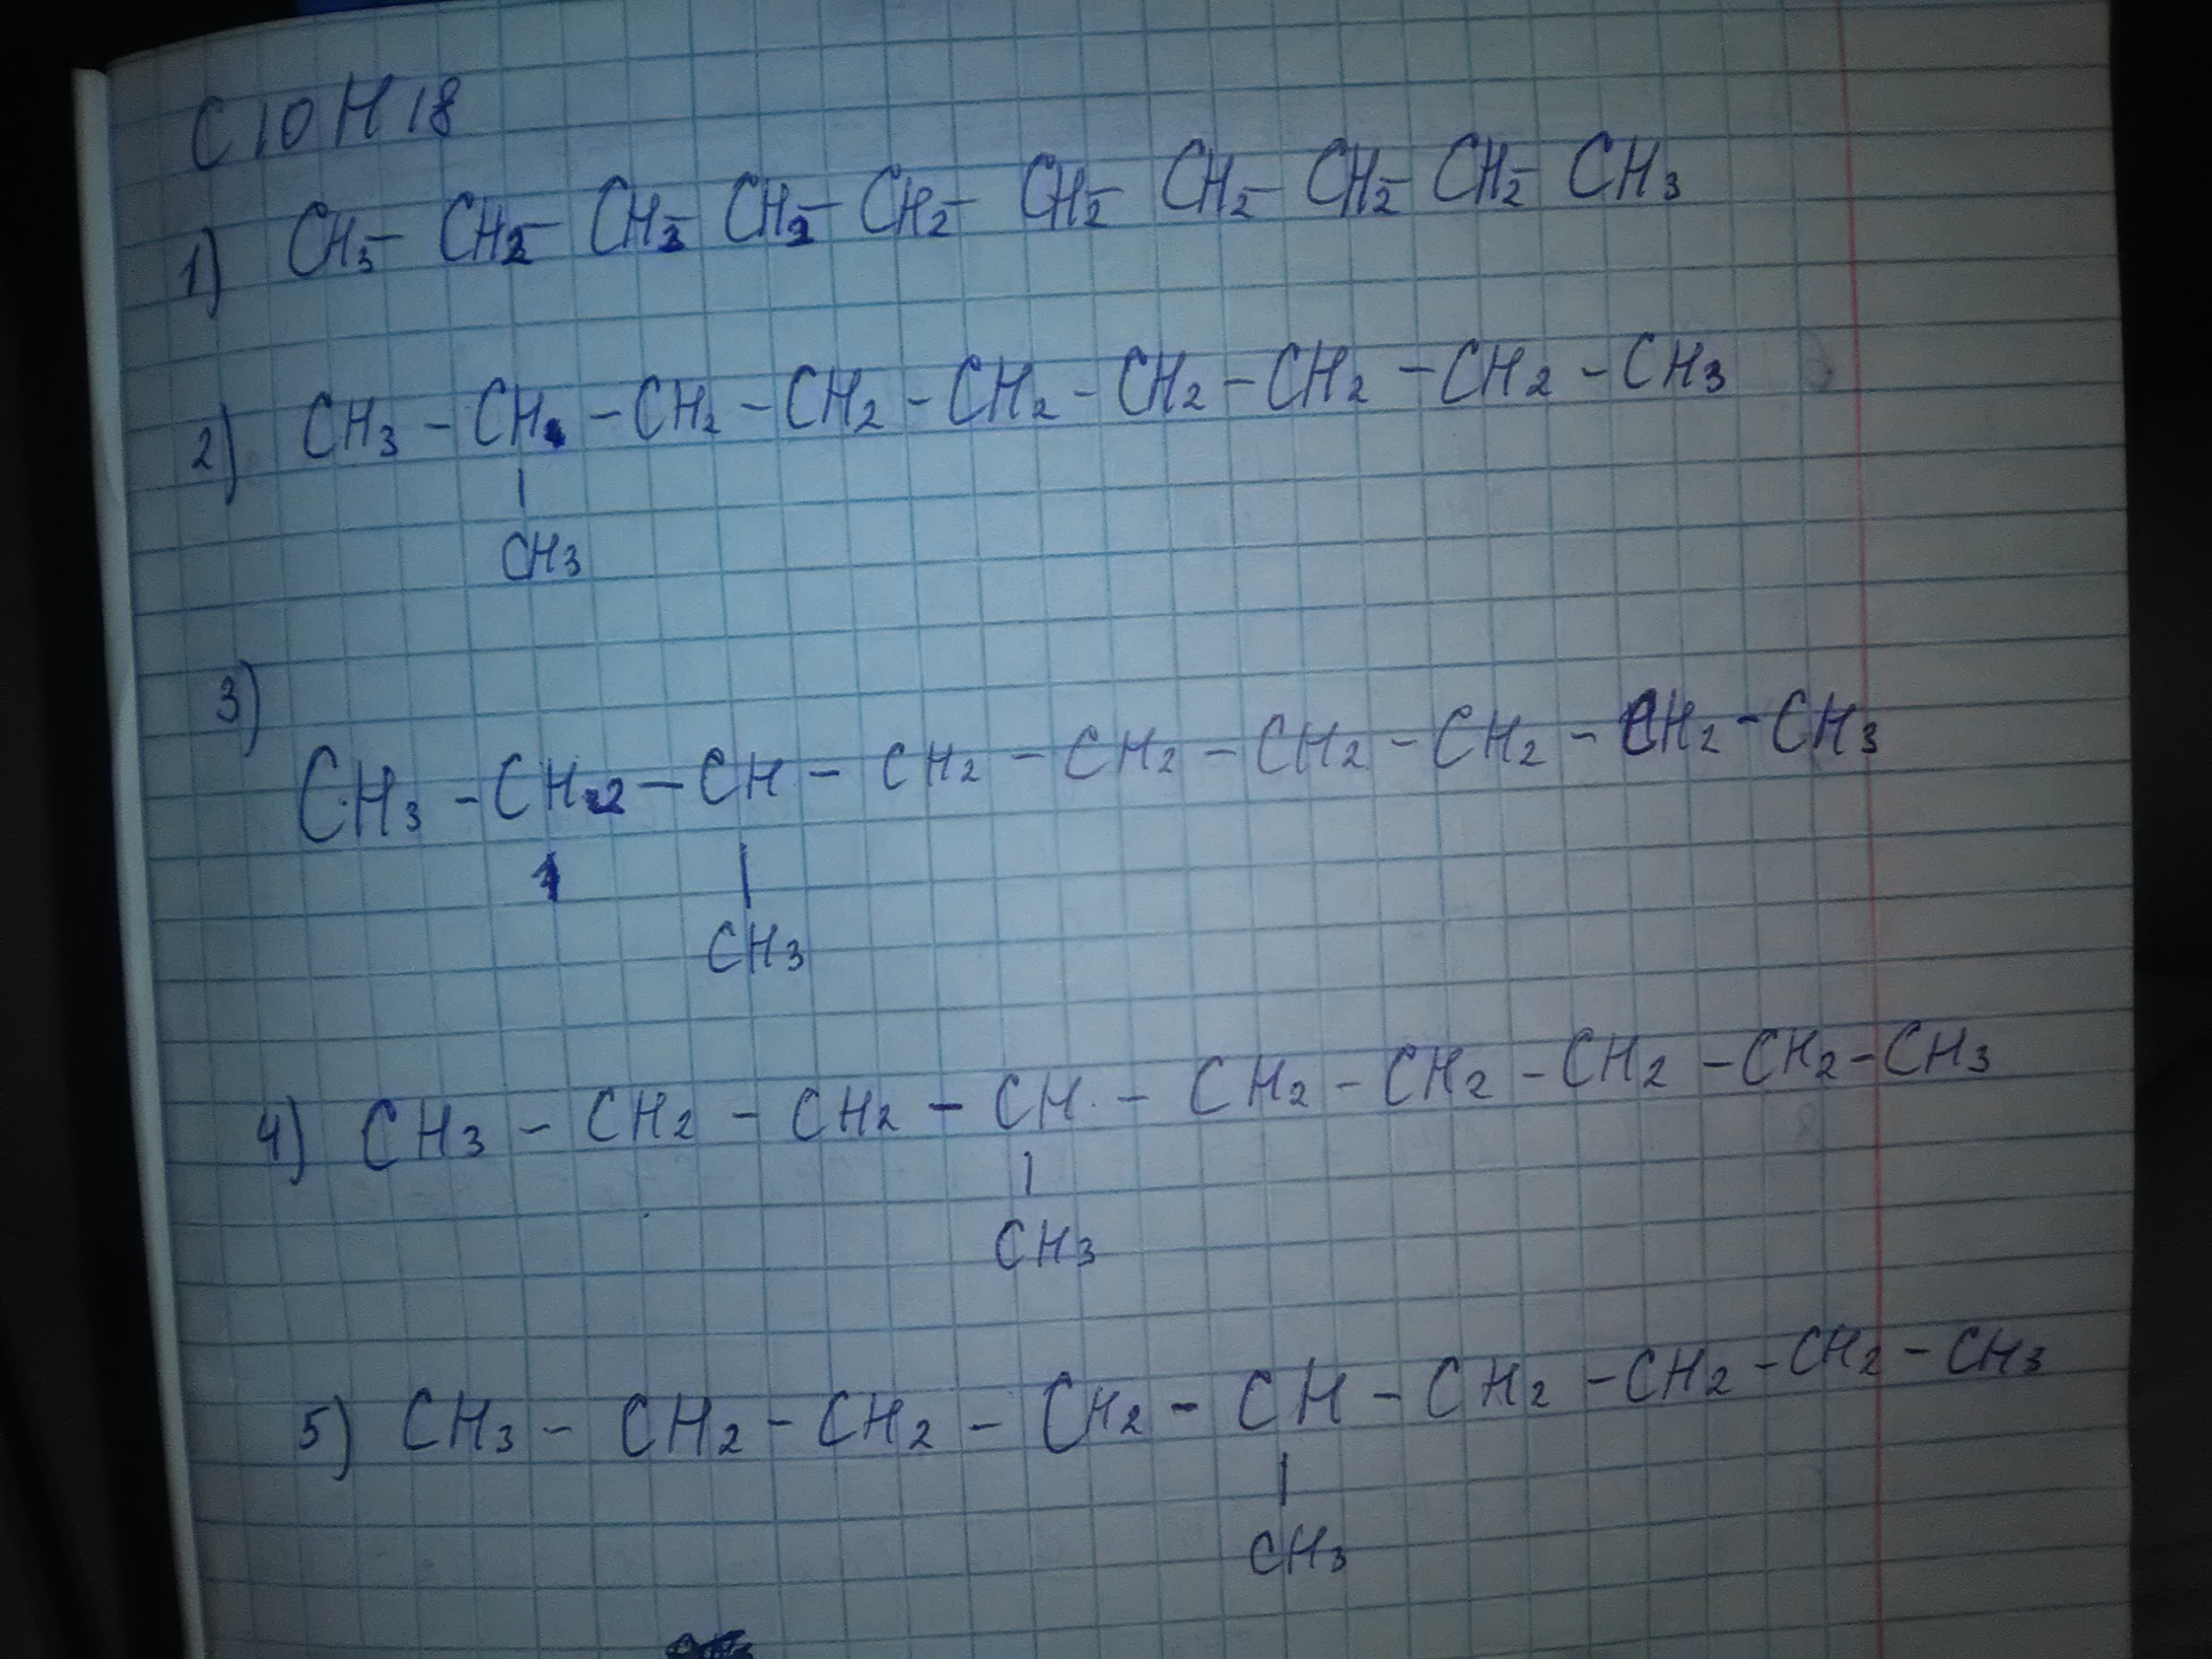 C10H18
1) CH3- CH2- CH2- CH2- CH2- CH2- CH2- CH2- CH2- CH3
2) CH3 - CH - CH2 - CH2 - CH2 - CH2 - CH2 - CH2 - CH3
|
CH3
3)
CH3 - CH2 - CH - CH2 - CH2 - CH2 - CH2 - CH2 - CH3
|
CH3
4) CH3 - CH2 - CH2 - CH - CH2 - CH2 - CH2 - CH2 - CH3
|
CH3
5) CH3 - CH2 - CH2 - CH2 - CH - CH2 - CH2 - CH2 - CH3
|
CH3